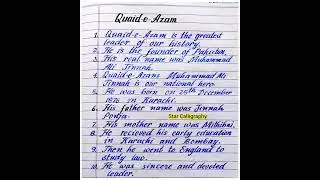 Quaid-e-Azam
1. Quaid-e-Azam is the greatest
leader of our history.
2. He is the founder of Pakistan.
3. His real name was Muhammad
Ali Jinnah.
4. Quaid-e-Azam Muhammad Ali
Jinnah is our national hero.
5. He was born on 25th December
1876 in Karachi.
6. His father name was Jinnah
Poonja.
Star Calligraphy
7. His mother name was Mithibai.
8. He recieved his early education
in Karachi and Bombay.
9. Then he went to England to
study law.
10. He was sincere and devoted
leader.